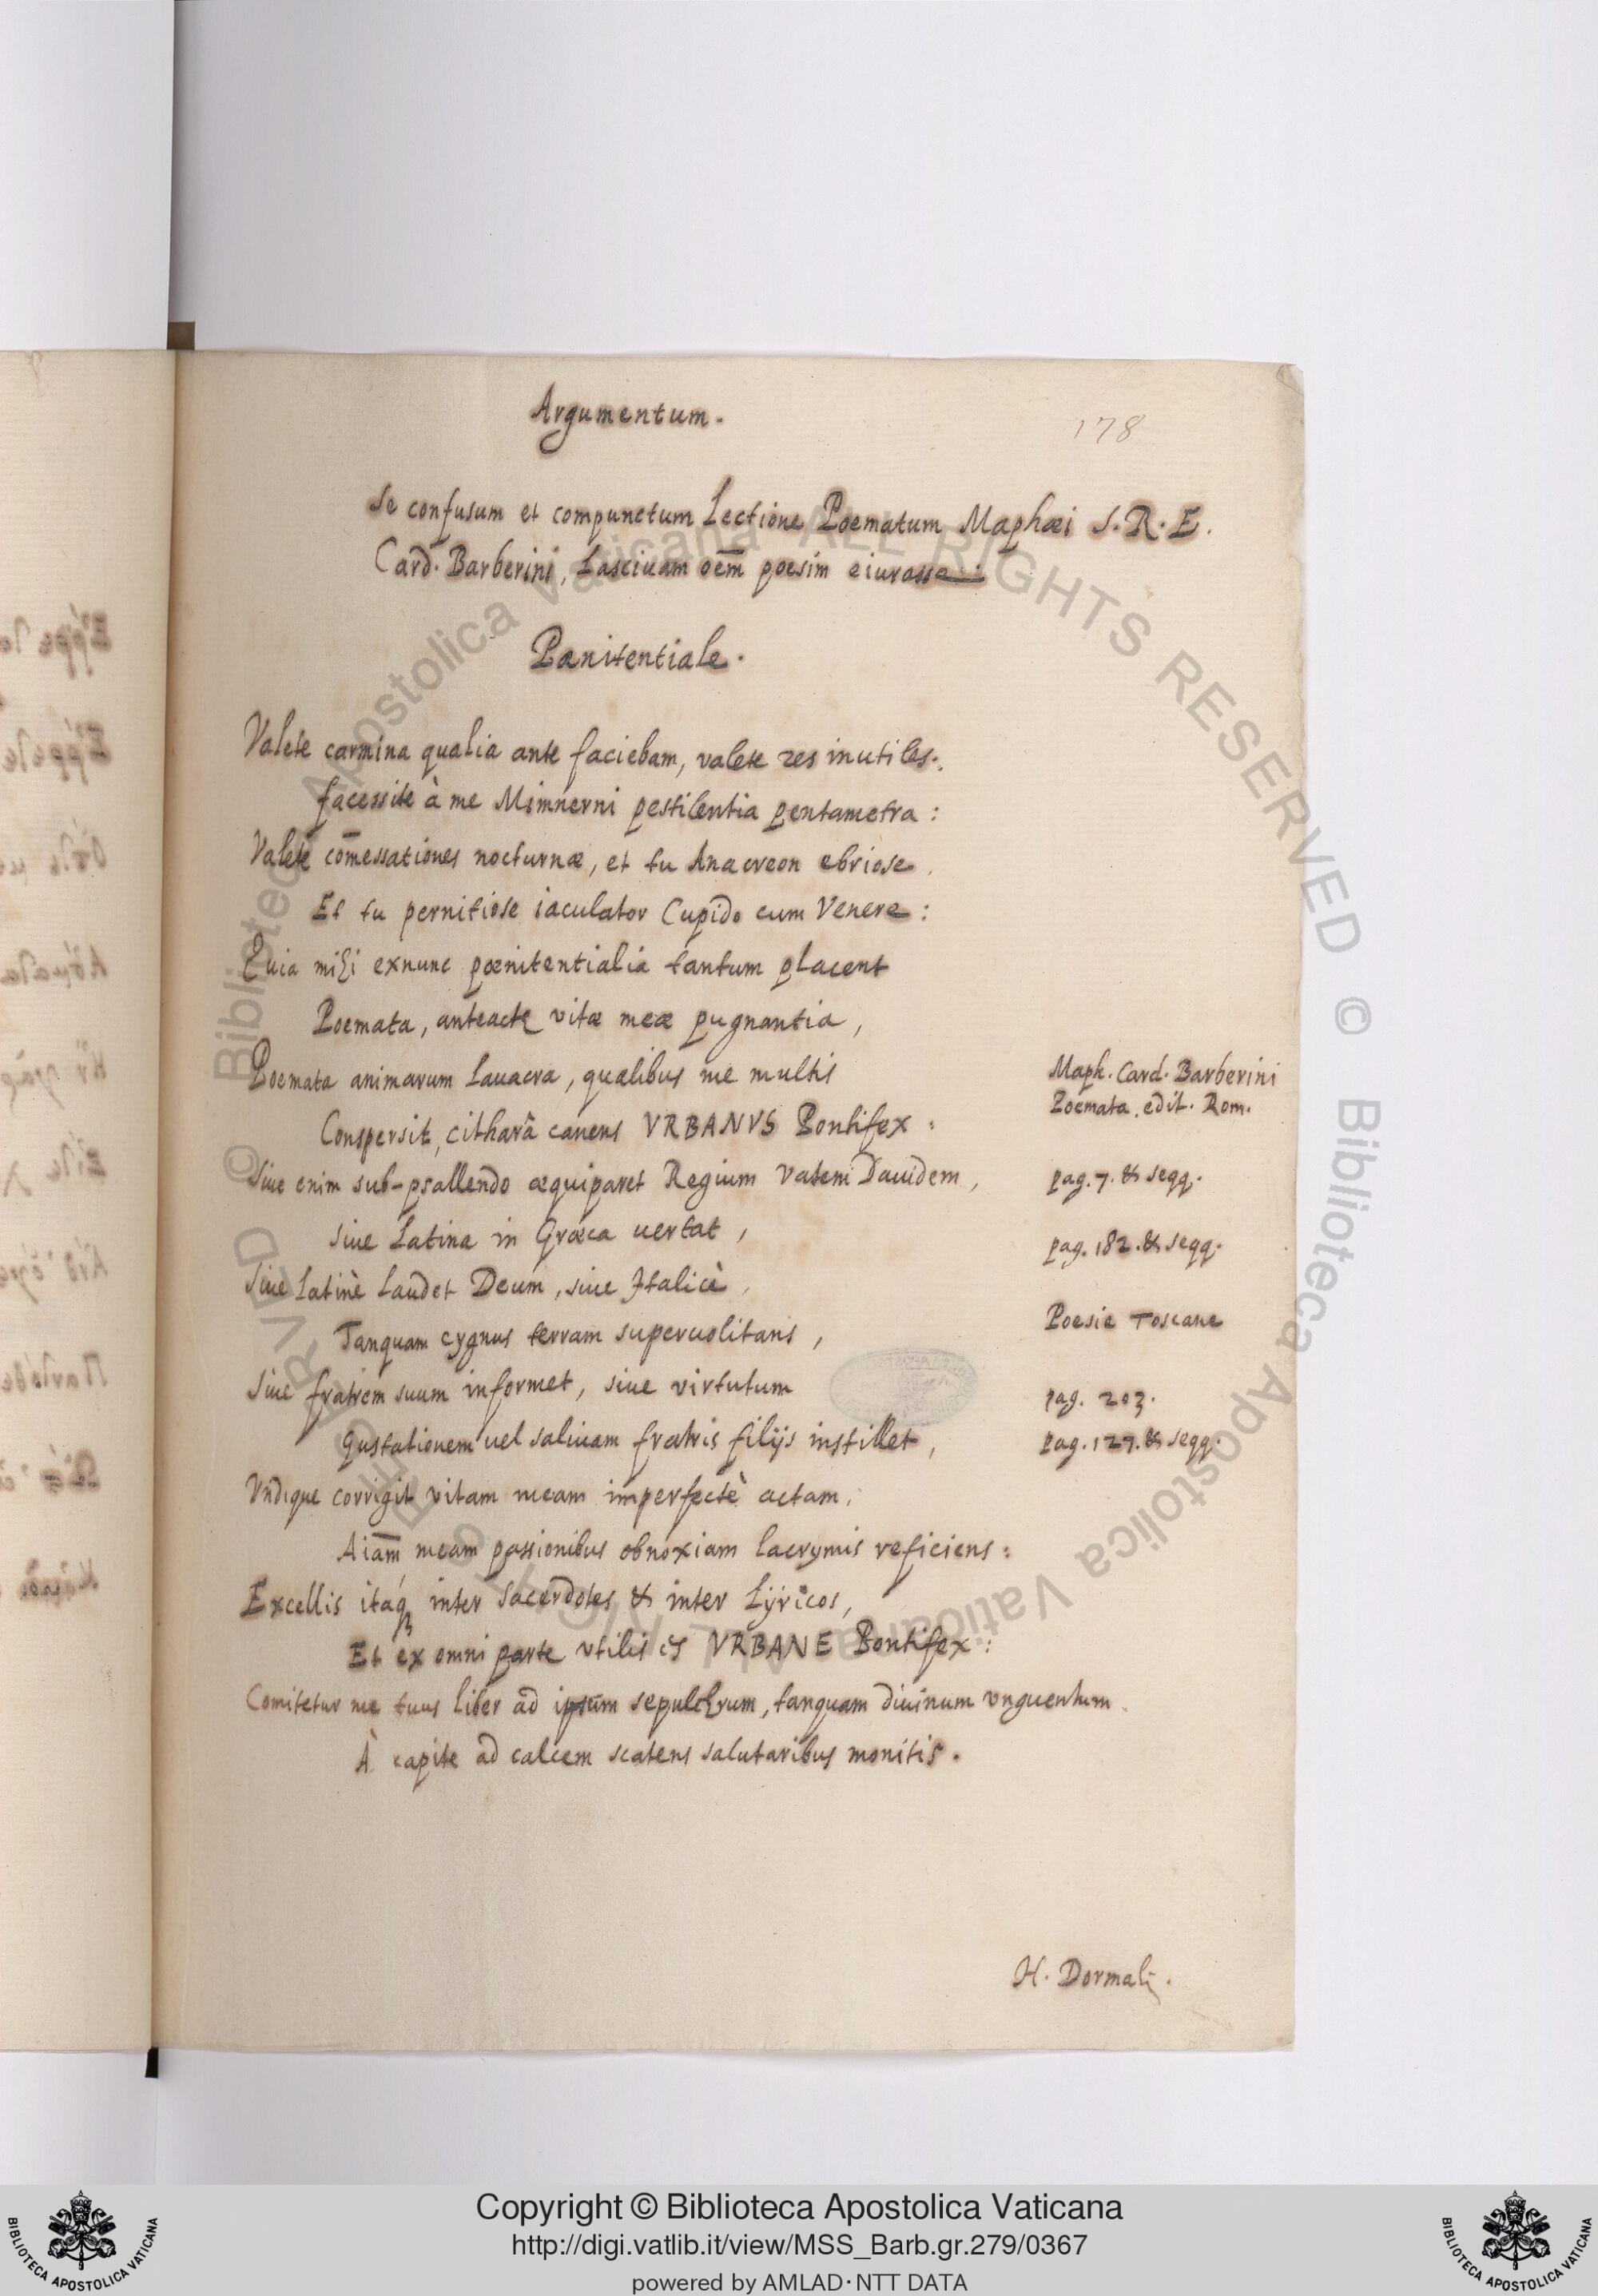 Argumentum.
178
Se confusum et compunctum Lectione Poematum Maphæi S.R.E.
Card. Barberini, Lasciuam oem̄ poesim eiurasse
Pœnitentiale.
Valete carmina qualia ante faciebam, valete res inutiles.
facessite à me Mimnerni pestilentia pentametra:
Valete com̄essationes nocturnæ, et tu Anacreon ebriose.
Et tu pernitiose iaculator Cupido cum Venere:
Quia mihi exnunc pœnitentialia tantum placent
Poemata, anteactę vitæ meæ pugnantia,
Poemata animarum Lauacra, qualibus me multis
Maph. Card. Barberini
Poemata edit. Rom.
Conspersit, citharâ canens VRBANVS Pontifex:
Siue enim sub-psallendo æquiparet Regium Vatem Dauidem,
pag. 7. & seqq.
Siue Latina in Græca uertat,
pag. 182. & seqq.
Siue Latinè Laudet Deum, siue Italicè,
Tanquam cygnus terram superuolitans,
Poesie Toscane
Siue fratrem suum informet, siue virtutum
pag. 203.
Gustationem uel saliuam fratris filijs instillet,
pag. 127. & seqq.
Vndique corrigit vitam meam imperfectè actam,
Aiam̄ meam passionibus obnoxiam lacrymis reficiens:
Excellis itaq inter Sacerdotes & inter Lÿricos,
Et ex omni parte vtilis es VRBANE Pontifex:
Comitetur me tuus liber ad ipsum sepulchrum, tanquam diuinum vnguentum.
À capite ad calcem scatens salutaribus monitis.
H. Dormalij.
Copyright © Biblioteca Apostolica Vaticana
http://digi.vatlib.it/view/MSS_Barb.gr.279/0367
powered by AMLAD·NTT DATA
BIBLIOTECA APOSTOLICA VATICANA
BIBLIOTECA APOSTOLICA VATICANA